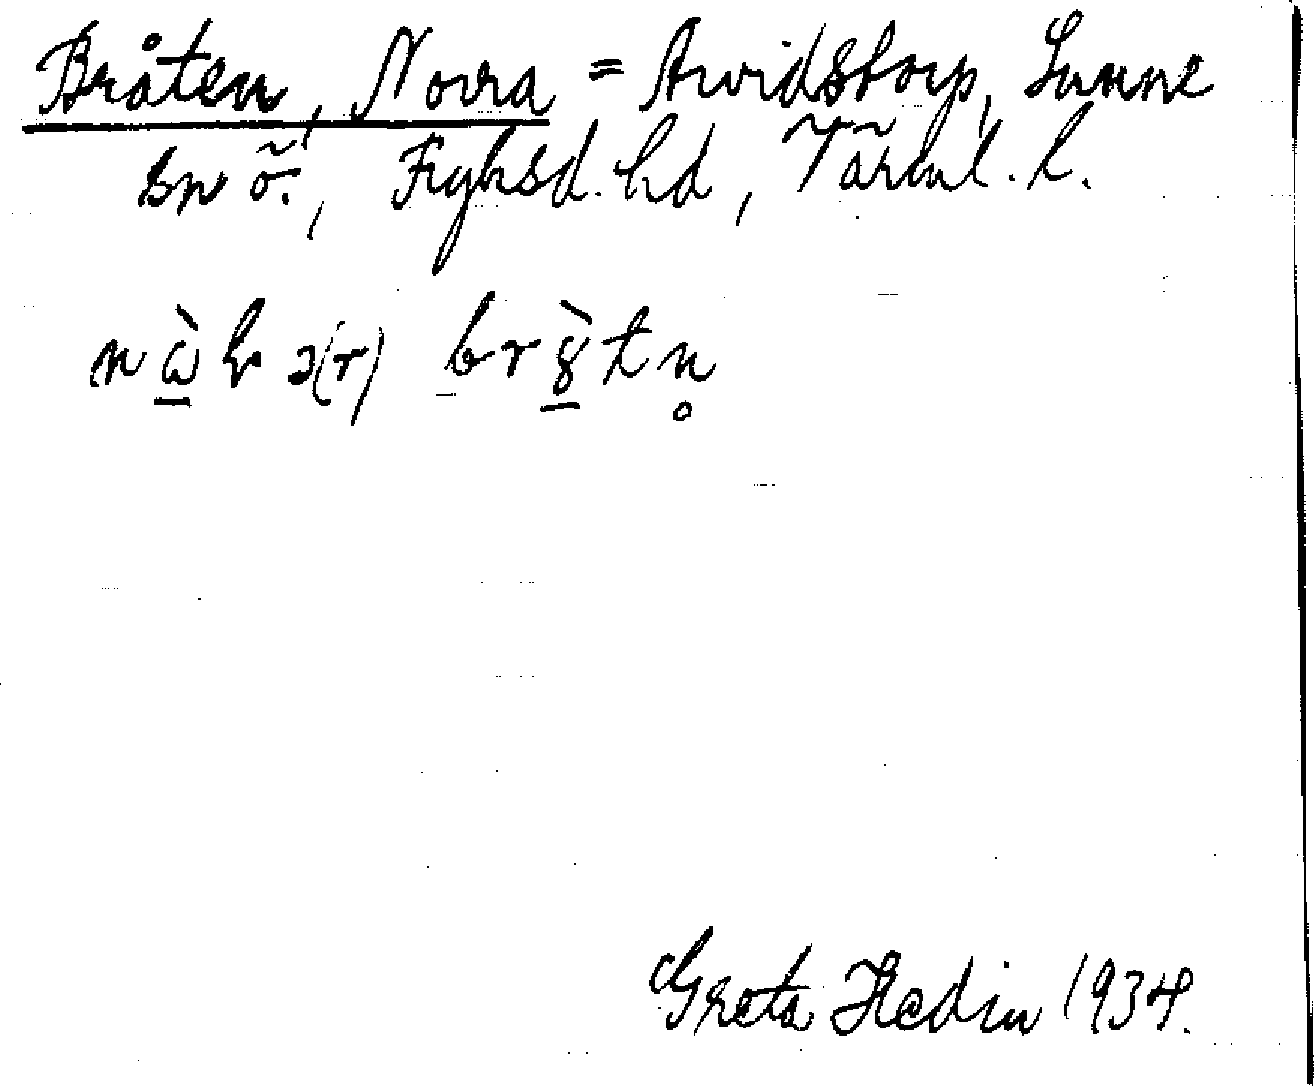 Bråten, Norra = Arvidstorp, Sunne
sn ö., Fryksd. hd, Värml. l.
Greta Hedin 1934.